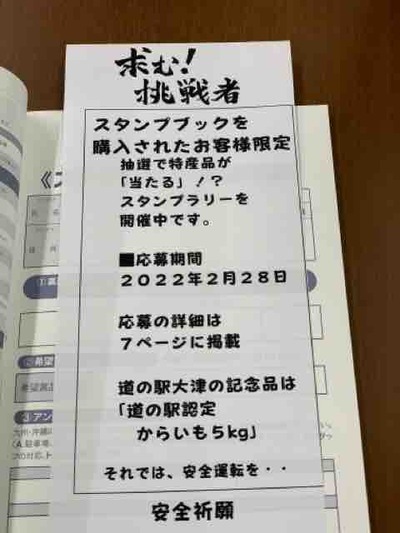 求む！
挑戦者
スタンプブックを
購入されたお客様限定
抽選で特産品が
「当たる」！？
スタンプラリーを
開催中です。
■応募期間
２０２２年２月２８日
応募の詳細は
７ページに掲載
道の駅大津の記念品は
「道の駅認定
からいも５kg」
それでは、安全運転を・・
安全祈願
③アン
九州・沖縄